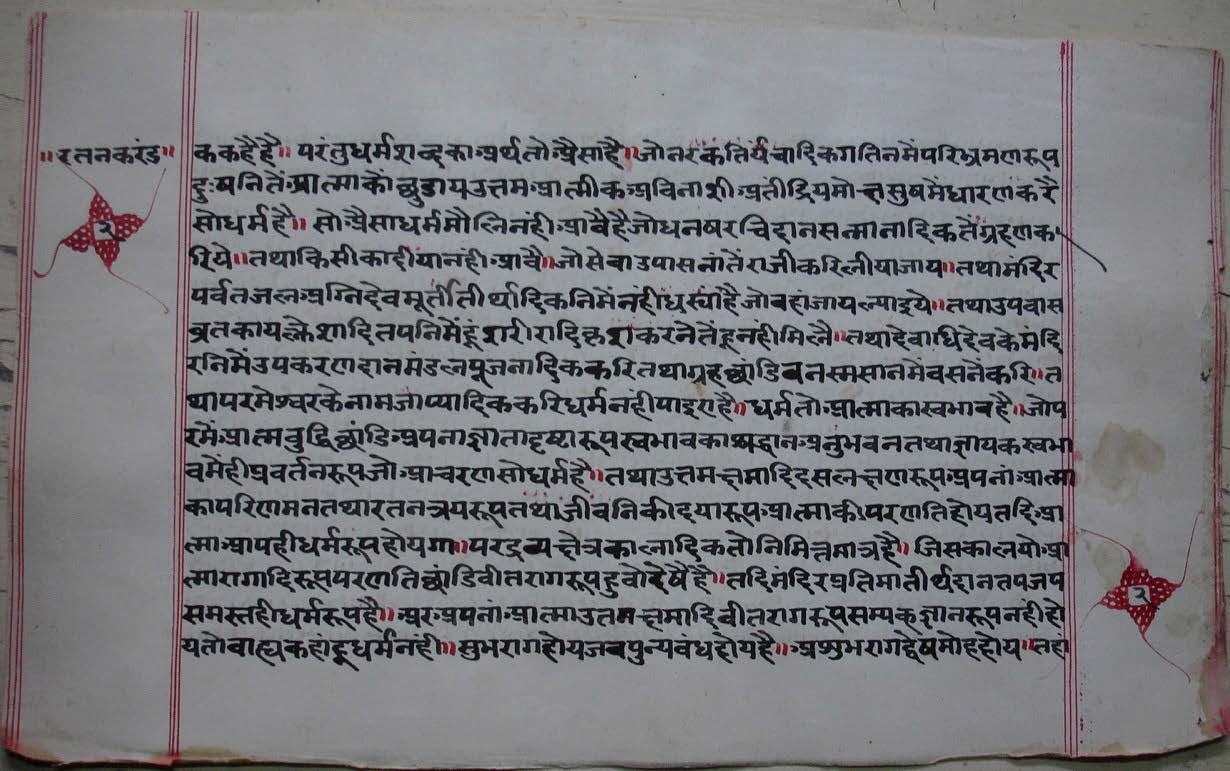 ॥रतनकरंड॥
२
ककहैहै॥ परंतुधर्मशब्दकाअर्थतोअैसाहै॥जोनरकतिर्यंचादिकगतिनमेंपरिभ्रमणरूप
दुःषनितेंआत्माकोंछुडायउत्तमआत्मीकअविनाशीअतींद्रियमोक्षसुषमेंधारणकरै
सोधर्महै॥ सोअैसाधर्ममौलिनंहीआवैहैजोधनषरचिदानसन्मानादिकतेंग्रहणक
रिये॥तथाकिसीकादीयानंहीआवै॥जोसेवाउपासनांतेंराजीकरिलीयाजाय॥तथामंदिर
पर्वतजलअग्निदेवमूर्तीतीर्थादिकनिमेंनंहीधस्योहैजोवहांजायल्याइये॥तथाउपवास
व्रतकायक्लेशादितपनिमेंहूंशरीरादिकृशकरनेतेंहूनंहीमिलै॥तथादेवाधिदेवकेमंदि
रनिमेंउपकरणदानमंडलपूजनादिककरितथागृहछांडिबनस्मसानमेंवसनैंकरि॥त
थापरमेश्वरकेनामजाप्यादिककरिधर्मनंहीपाइएहै॥ धर्मतोआत्माकास्वभावहै॥जोप
रमेंआत्मबुद्धिछांडिअपनाज्ञातादृष्टारूपस्वभावकाश्रद्धानअनुभवनतथाज्ञायकस्वभा
वमेंहीप्रवर्तनरूपजोआचरणसोधर्महै॥तथाउत्तमक्षमादिदसलक्षणरूपअपनांआत्मा
कापरिणमनतथारतनत्रयरूपतथाजीवनिकीदयारूपआत्माकीपरणतिहोयतदिआ
त्माआपहीधर्मरूपहोयगा॥परद्रव्यक्षेत्रकालादिकतोनिमित्तमात्रहै॥ जिसकालमोआ
त्मारागादिरूपपरणतिछांडिवीतरागरूपहुवोदेषैहै॥तदिमंदिरप्रतिमातीर्थदानतपजप
समस्तहीधर्मरूपहै॥अरअपनांआत्माउतमक्षमादिवीतरागरूपसम्यकज्ञानरूपनंहीहो
यतोवाह्यकहांहूधर्मनंही॥सुभरागहोयजबपुन्यबंधहोयहै॥अशुभरागद्वेषमोहहोय॥तहां
२